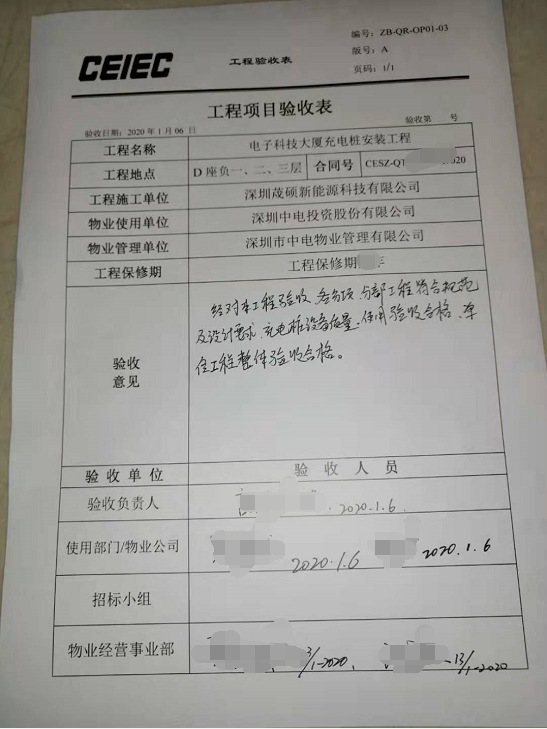 编号: ZB-QR-OP01-03
CEIEC 工程验收表 版号: A
页码: 1/1
工程项目验收表
验收日期: 2020 年 1 月 06 日 验收第 号
工程名称 电子科技大厦充电桩安装工程
工程地点 D 座负一、二、三层 合同号 CESZ-QT 020
工程施工单位 深圳茂硕新能源科技有限公司
物业使用单位 深圳中电投资股份有限公司
物业管理单位 深圳市中电物业管理有限公司
工程保修期 工程保修期 年
经对本工程验收, 各分项、分部工程符合规范
及设计要求, 充电桩设备质量、使用验收合格,
工程整体验收合格。
验收
意见
验收单位 验收人员
验收负责人 2020.1.6
使用部门/物业公司 2020.1.6 2020.1.6
招标小组
物业经营事业部 3/1-2020, 13/1-2020